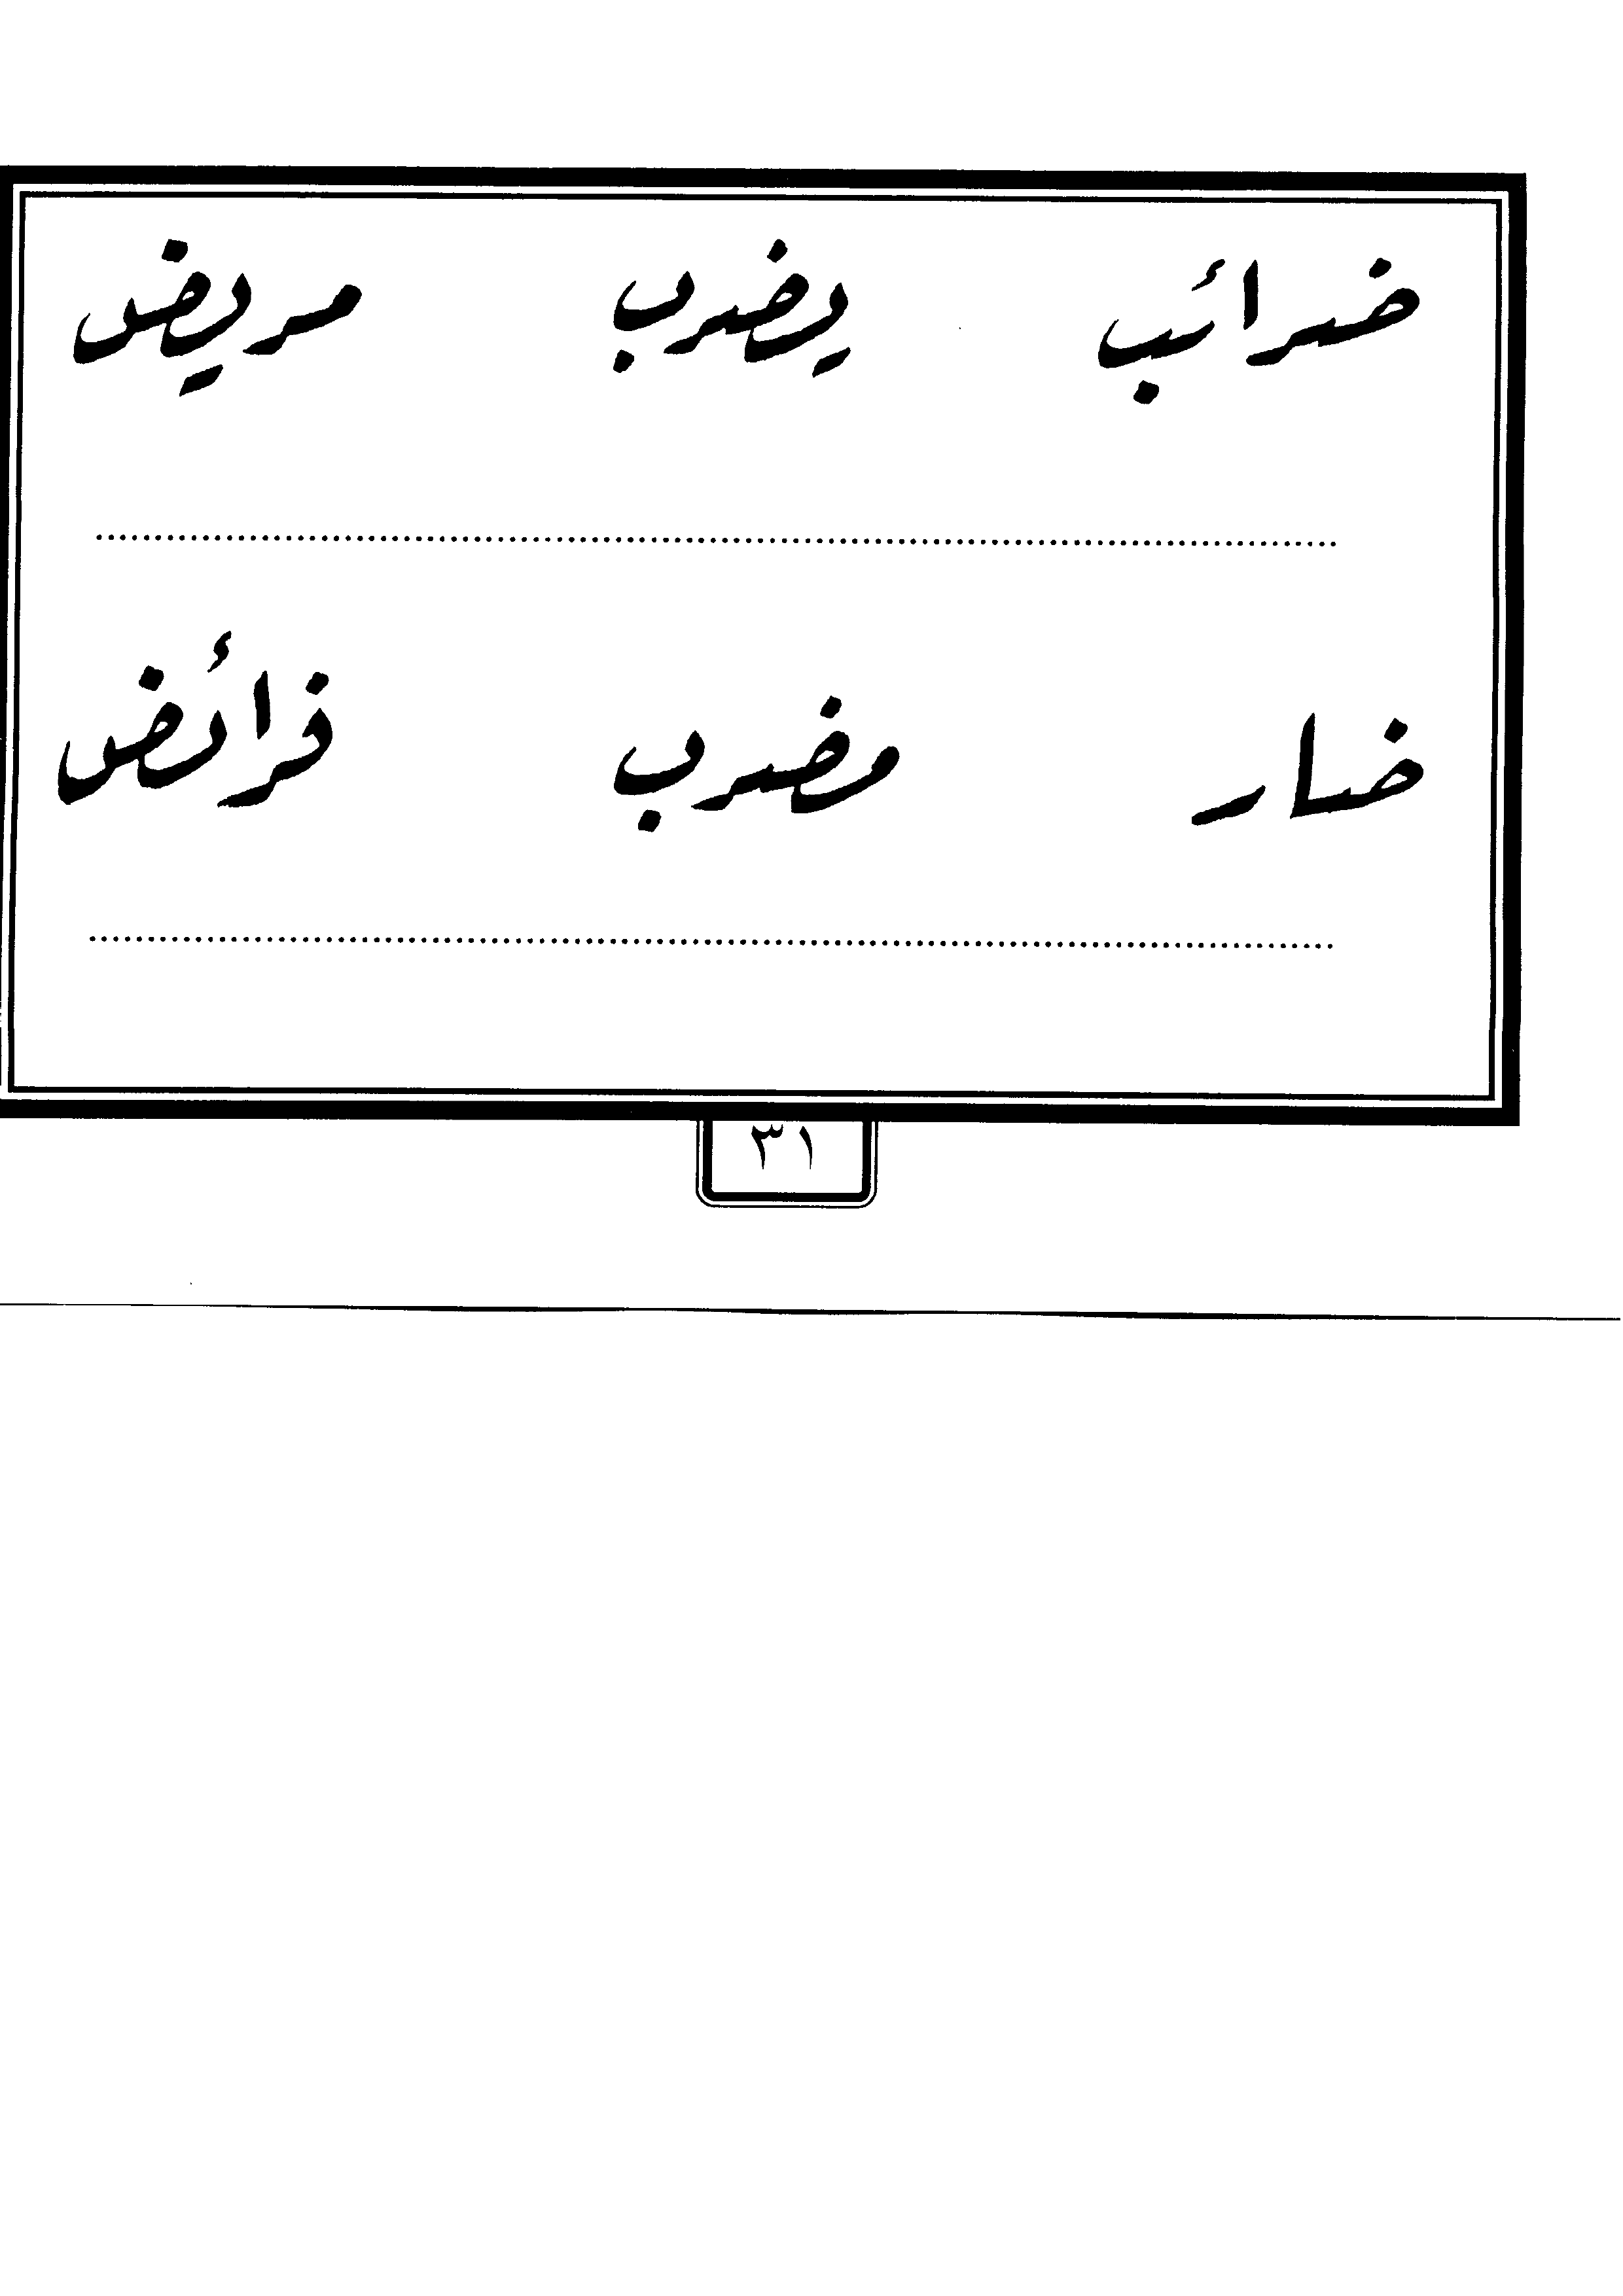 ضرائب يضرب مريض
ضار مضرب فرائض
٣١